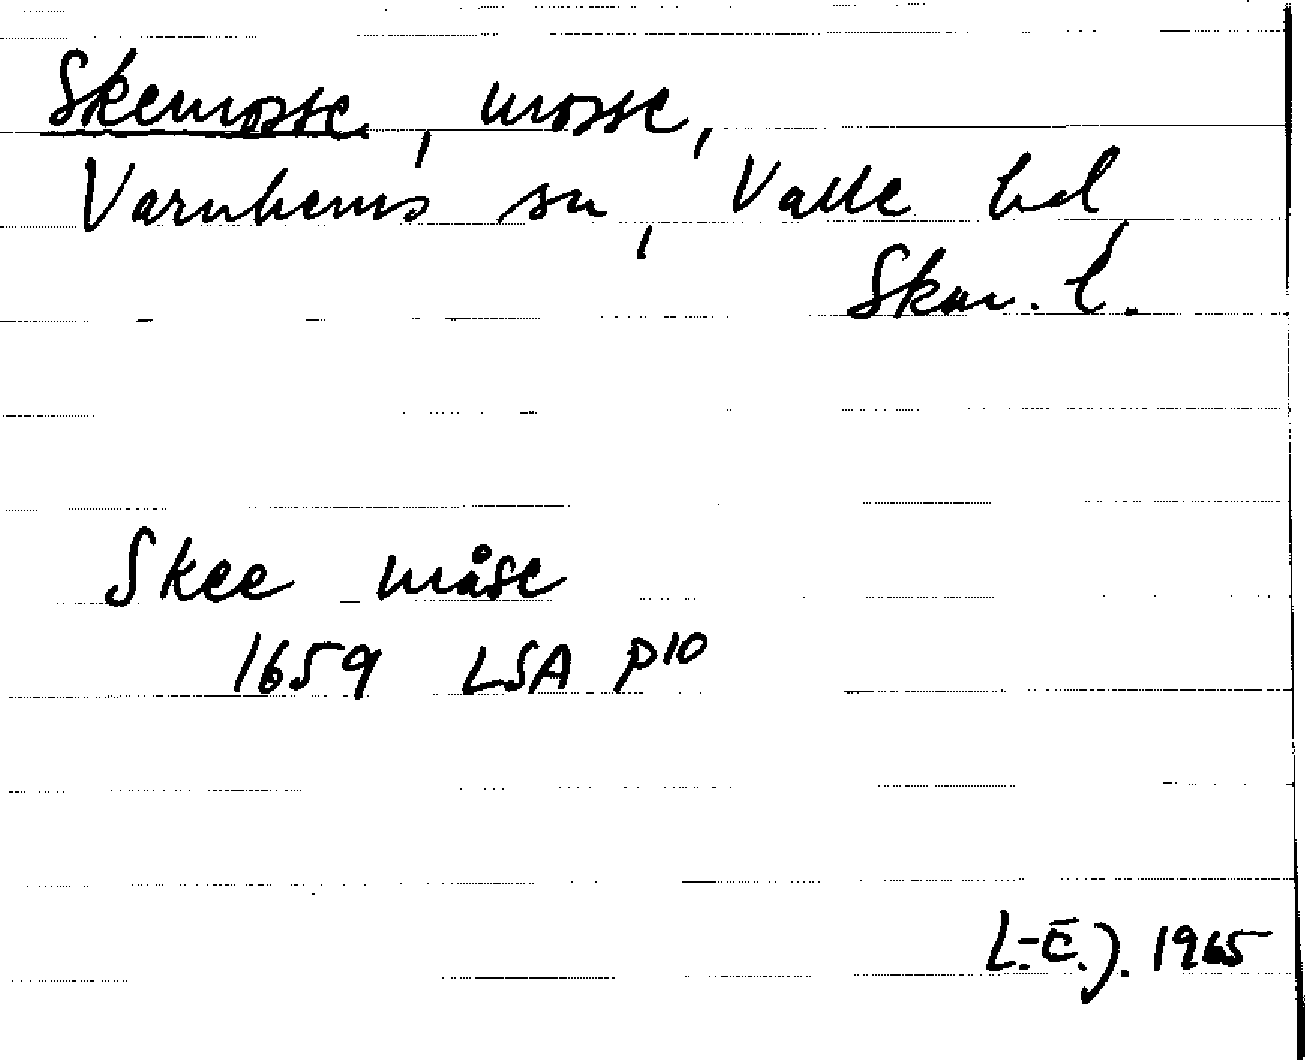 Skemosse, mosse,
Varnhems sn, Valle hd,
Skar. l.
Skee måse
1659 LSA P10
L.-E. J. 1965